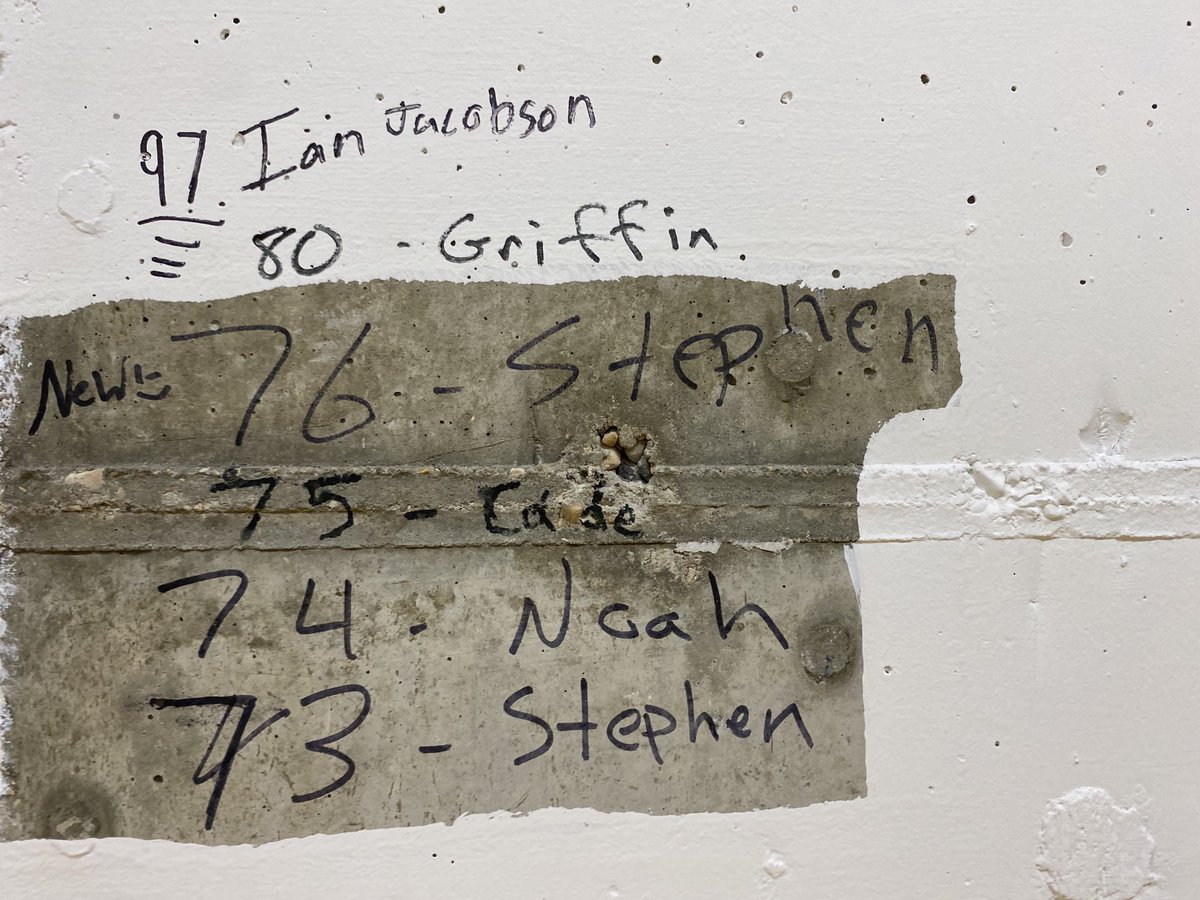 97 Ian Jacobson
80 - Griffin
New!! 76 - Stephen
75 - Cade
74 - Noah
73 - Stephen